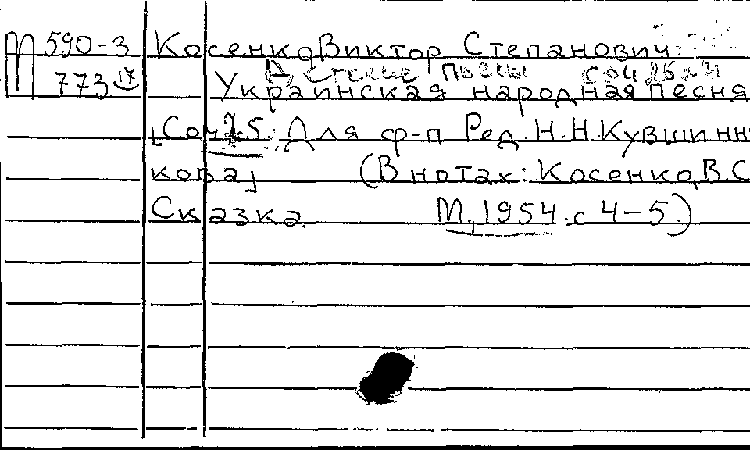 М 590-3 Косенко Виктор Степанович
773 Украинская народная песня
[Соч. 15. Для ф-п Ред. Н.Н. Кувшинни
кова] (В нотах: Косенко, В.С
Сказка. М, 1954. с 4-5.)